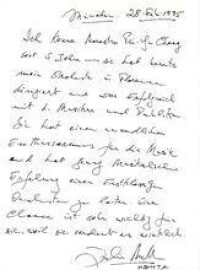 München 28 Feb. 1995
Ich kenne Maestro
seit 5 Jahre und er hat heute
mein Orchester in Florenz
dirigiert und war Erfolgreich
mit d. Musiker und Publikum.
Er hat einen unendlichen
Enthusiasmus für die Musik
und hat genug Musikalische
Erfahrung einen Erstklassigen
Orchester zu leiten. Eine
Chance ist sehr wichtig für
ihn, weil er verdient es wirklich
MEHTA